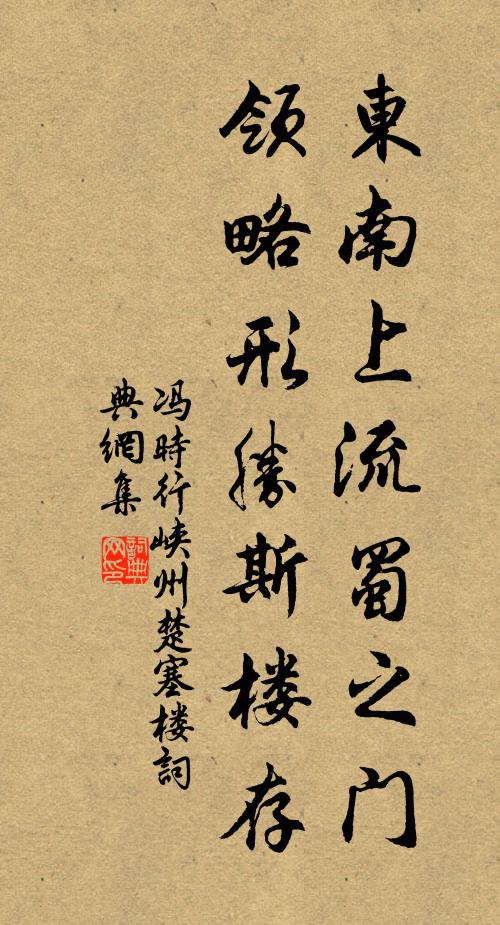 東南上流蜀之门
領略形勝斯楼存
冯時行峡州楚塞楼詞
典網集
詞典
网印